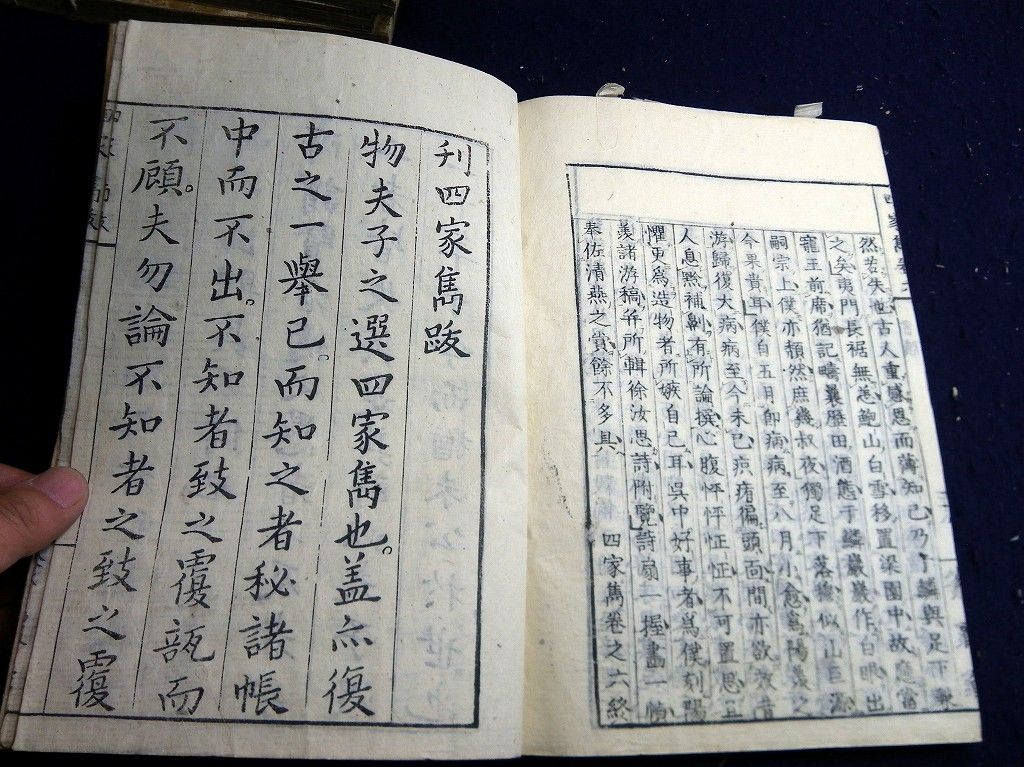 然若失世古人重感恩而薄知己乃于鱗與足下兼
之矣夷門長裾無恙鮑山白雪移置梁園中故應當
寵王前席猶記疇曩歷田酒態于鱗巖巖作白眼出
嗣宗上僕亦頹然庶幾叔夜獨足下落穆似山巨源
今果貴耳僕自五月卽病病至八月小愈
游歸復大病病至今未已疥瘡徧頭面間亦欲效昔
人息黥補劓有所論撰心腹怦怦怔怔不可置思且
懼更爲造物者所嫉自己耳吳中好事者爲僕刻陽
羨諸游稿幷所輯徐汝思詩附覽詩扇一握畫一帕
奉佐清燕之賞餘不多具
四家雋卷之六終
刋四家雋跋
物夫子之選四家雋也。盖亦復
古之一舉已。而知之者秘諸帳
中而不出。不知者致之覆瓿而
不顧。夫勿論不知者之致之覆